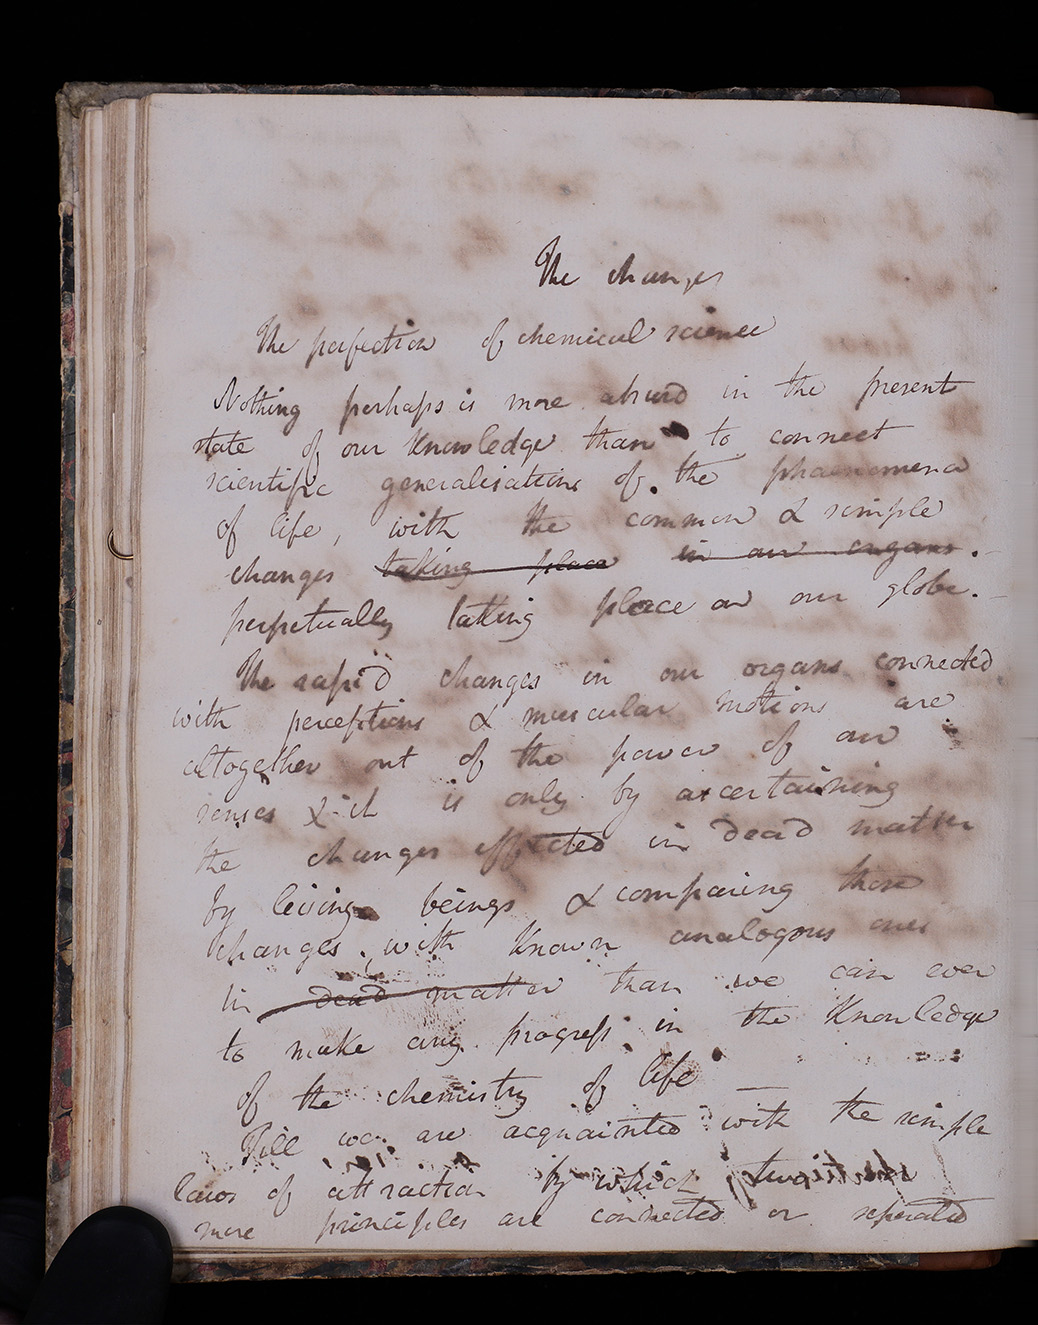 The changes
The perfection of chemical science
Nothing perhaps is more absurd in the present
state of our knowledge than to connect
scientific generalisations of the phaenomena
of life, with the common & simple
changes taking place in our organs.
perpetually taking place on our globe.
The rapid changes in our organs connected
with perceptions & muscular motions are
altogether out of the power of our
senses & it is only by ascertaining
the changes effected in dead matter
by living beings & comparing these
changes with known analogous ones
in dead matter than we can ever
to make any progress in the knowledge
of the chemistry of life —
Till we are acquainted with the simple
laws of attraction by which two
more principles are connected or seperated